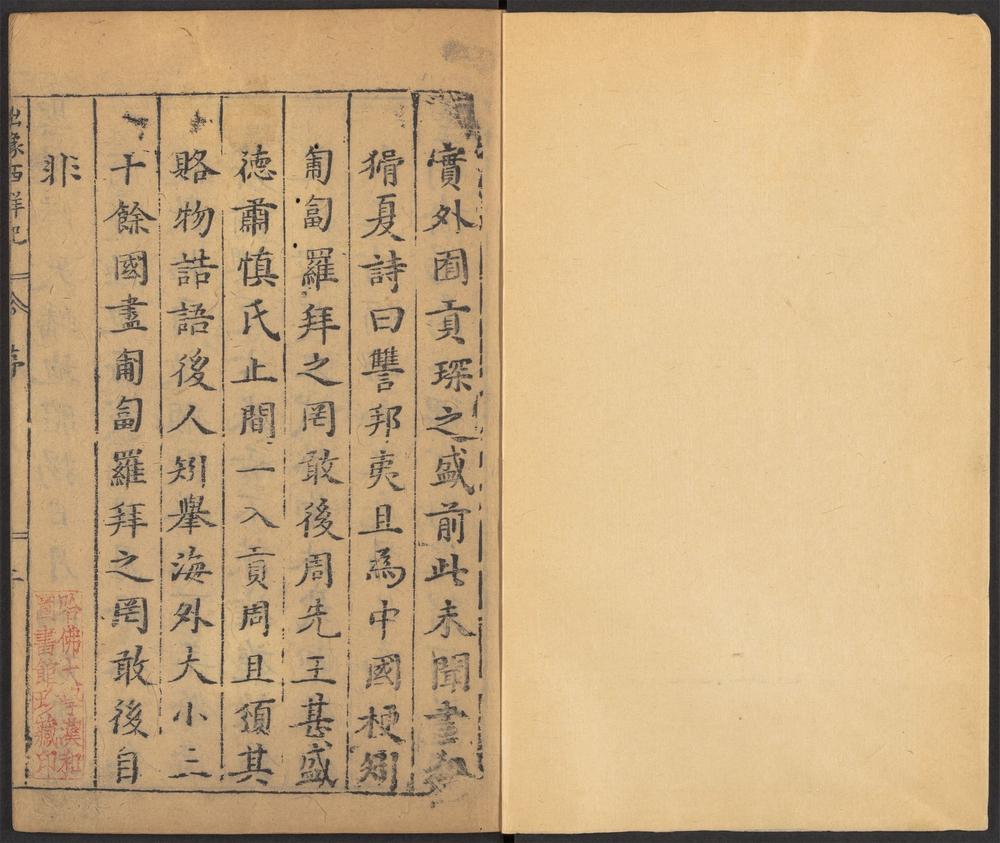 實外囿貢琛之盛前此未聞書
猾夏詩曰讐邦夷且為中國梗矧
匍匐羅拜之罔敢後周先王甚盛
德肅慎氏止間一入貢周且頒其
賂物誥語後人矧舉海外大小三
十餘國盡匍匐羅拜之罔敢後自
非
出象西洋記 序 二
哈佛大學漢和
圖書館珍藏印